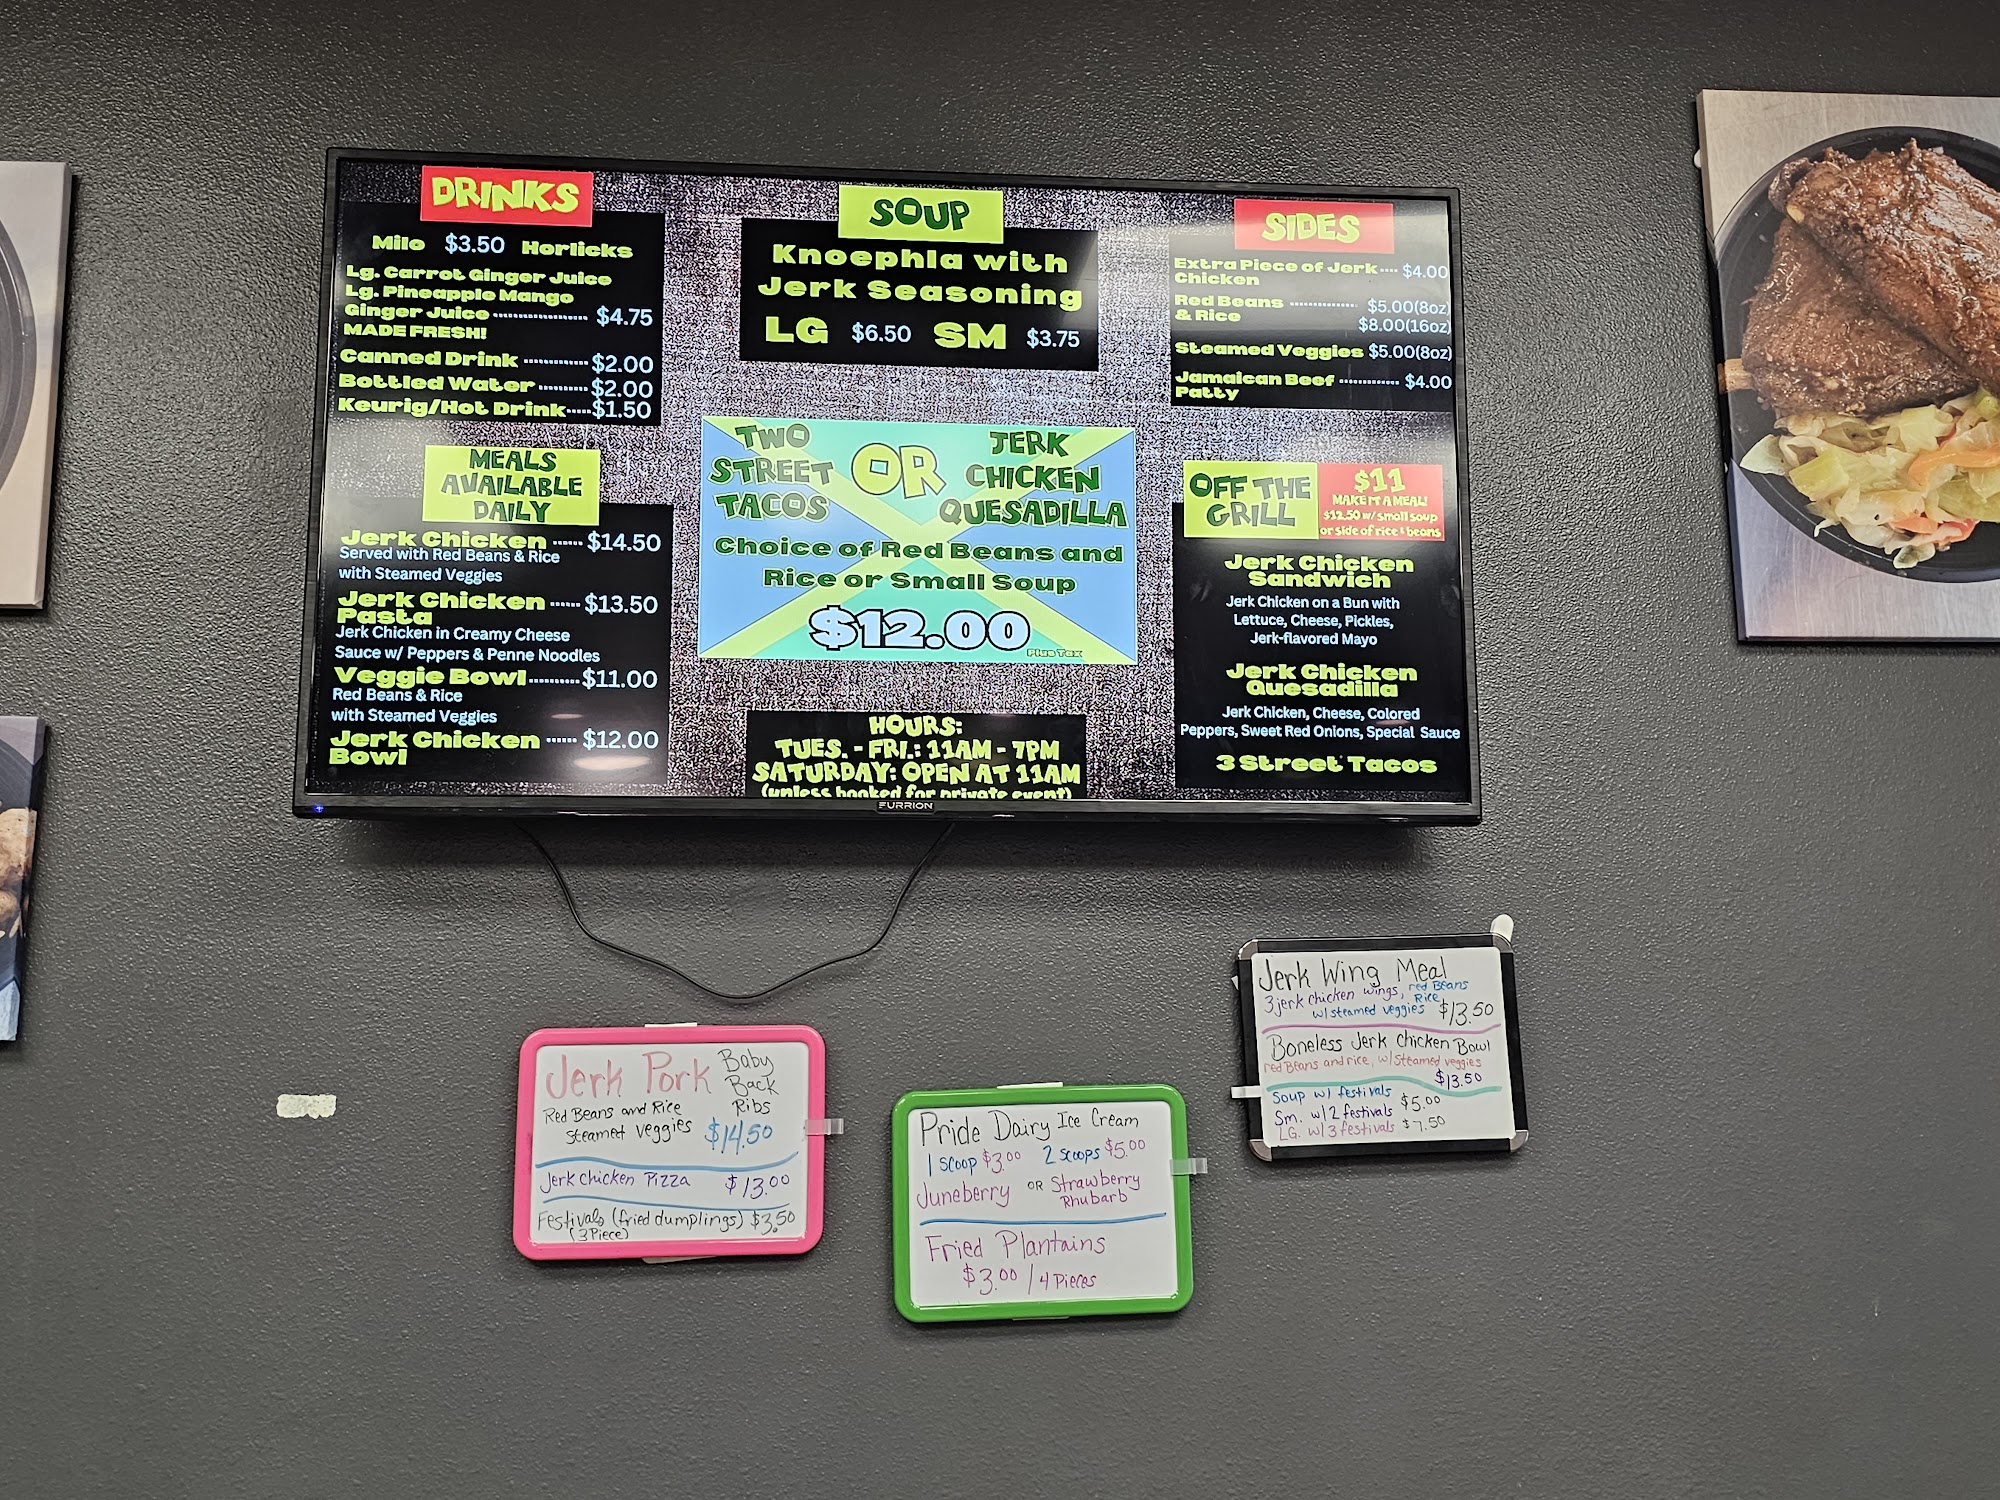 DRINKS
Milo $3.50 Horlicks
Lg. Carrot Ginger Juice
Lg. Pineapple Mango
Ginger Juice ................. $4.75
MADE FRESH!
Canned Drink ............ $2.00
Bottled Water .......... $2.00
Keurig/Hot Drink..... $1.50
MEALS
AVAILABLE
DAILY
Jerk Chicken ...... $14.50
Served with Red Beans & Rice
with Steamed Veggies
Jerk Chicken ...... $13.50
Pasta
Jerk Chicken in Creamy Cheese
Sauce w/ Peppers & Penne Noodles
Veggie Bowl.......... $11.00
Red Beans & Rice
with Steamed Veggies
Jerk Chicken ...... $12.00
Bowl
SOUP
Knoephla with
Jerk Seasoning
LG $6.50 SM $3.75
TWO
STREET
TACOS
OR
JERK
CHICKEN
QUESADILLA
Choice of Red Beans and
Rice or Small Soup
$12.00
Plus Tax
HOURS:
TUES. - FRI.: 11AM - 7PM
SATURDAY: OPEN AT 11AM
(unless booked for private event)
SIDES
Extra Piece of Jerk .... $4.00
Chicken
Red Beans ............... $5.00(8oz)
& Rice $8.00(16oz)
Steamed Veggies $5.00(8oz)
Jamaican Beef ............. $4.00
Patty
OFF THE
GRILL
$11
MAKE IT A MEAL!
$12.50 w/ small soup
or side of rice & beans
Jerk Chicken
Sandwich
Jerk Chicken on a Bun with
Lettuce, Cheese, Pickles,
Jerk-flavored Mayo
Jerk Chicken
Quesadilla
Jerk Chicken, Cheese, Colored
Peppers, Sweet Red Onions, Special Sauce
3 Street Tacos
FURRION
Jerk Pork Baby
Back
Ribs
Red Beans and Rice
Steamed Veggies $14.50
Jerk Chicken Pizza $13.00
Festivals (fried dumplings) $3.50
(3 Piece)
Pride Dairy Ice Cream
1 Scoop $3.00 2 Scoops $5.00
Juneberry OR Strawberry
Rhubarb
Fried Plantains
$3.00 / 4 Pieces
Jerk Wing Meal
3 jerk chicken wings, red Beans
Rice
w/ steamed veggies $13.50
Boneless Jerk Chicken Bowl
red Beans and rice, w/ steamed veggies
$13.50
Soup w/ festivals
Sm. w/ 2 festivals $5.00
LG. w/ 3 festivals $7.50